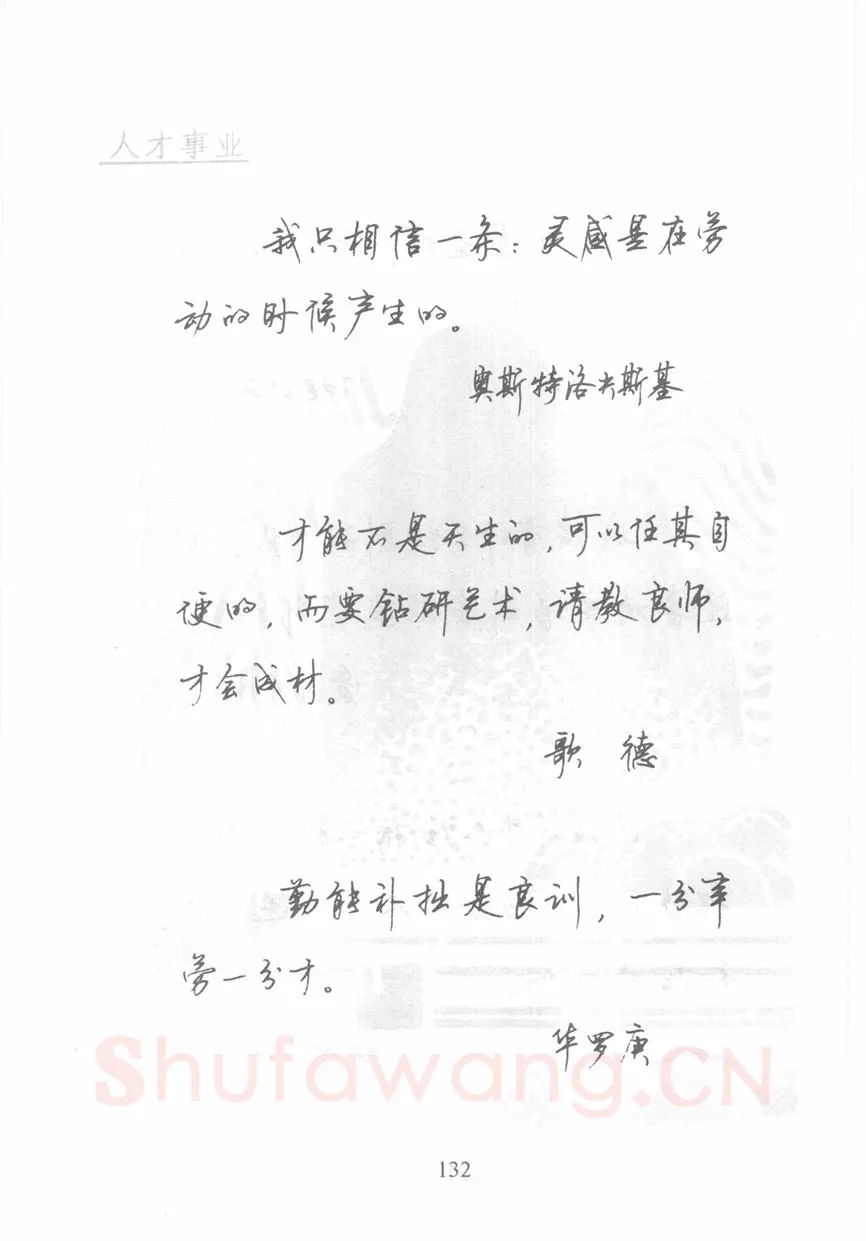 人才事业
我只相信一条：灵感是在劳
动的时候产生的。
奥斯特洛夫斯基
才能不是天生的，可以任其自
便的，而要钻研艺术，请教良师，
才会成材。
歌 德
勤能补拙是良训，一分辛
劳一分才。
华罗庚
Shufawang.CN
132